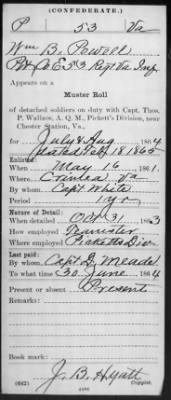 (CONFEDERATE.)
P 53 Va
Wm B. Powell
Pvt Co E 53 Regt Va Inf
Appears on a
Muster Roll
of detached soldiers on duty with Capt. Thos.
P. Wallace, A. Q. M., Pickett's Division, near
Chester Station, Va.,
for July & Aug, 1864
dated Feb 18 1865
Enlisted:
When May 16, 1861.
Where Va
By whom Capt White
Period 1 yr
Nature of Detail:
When detailed Oct 31, 1863
How employed Teamster
Where employed Picketts Div
Last paid:
By whom Capt D. Meade
To what time 30 June, 1864
Present or absent Present
Remarks:
Book mark:
J. B. Hyatt
(642) Copyist.